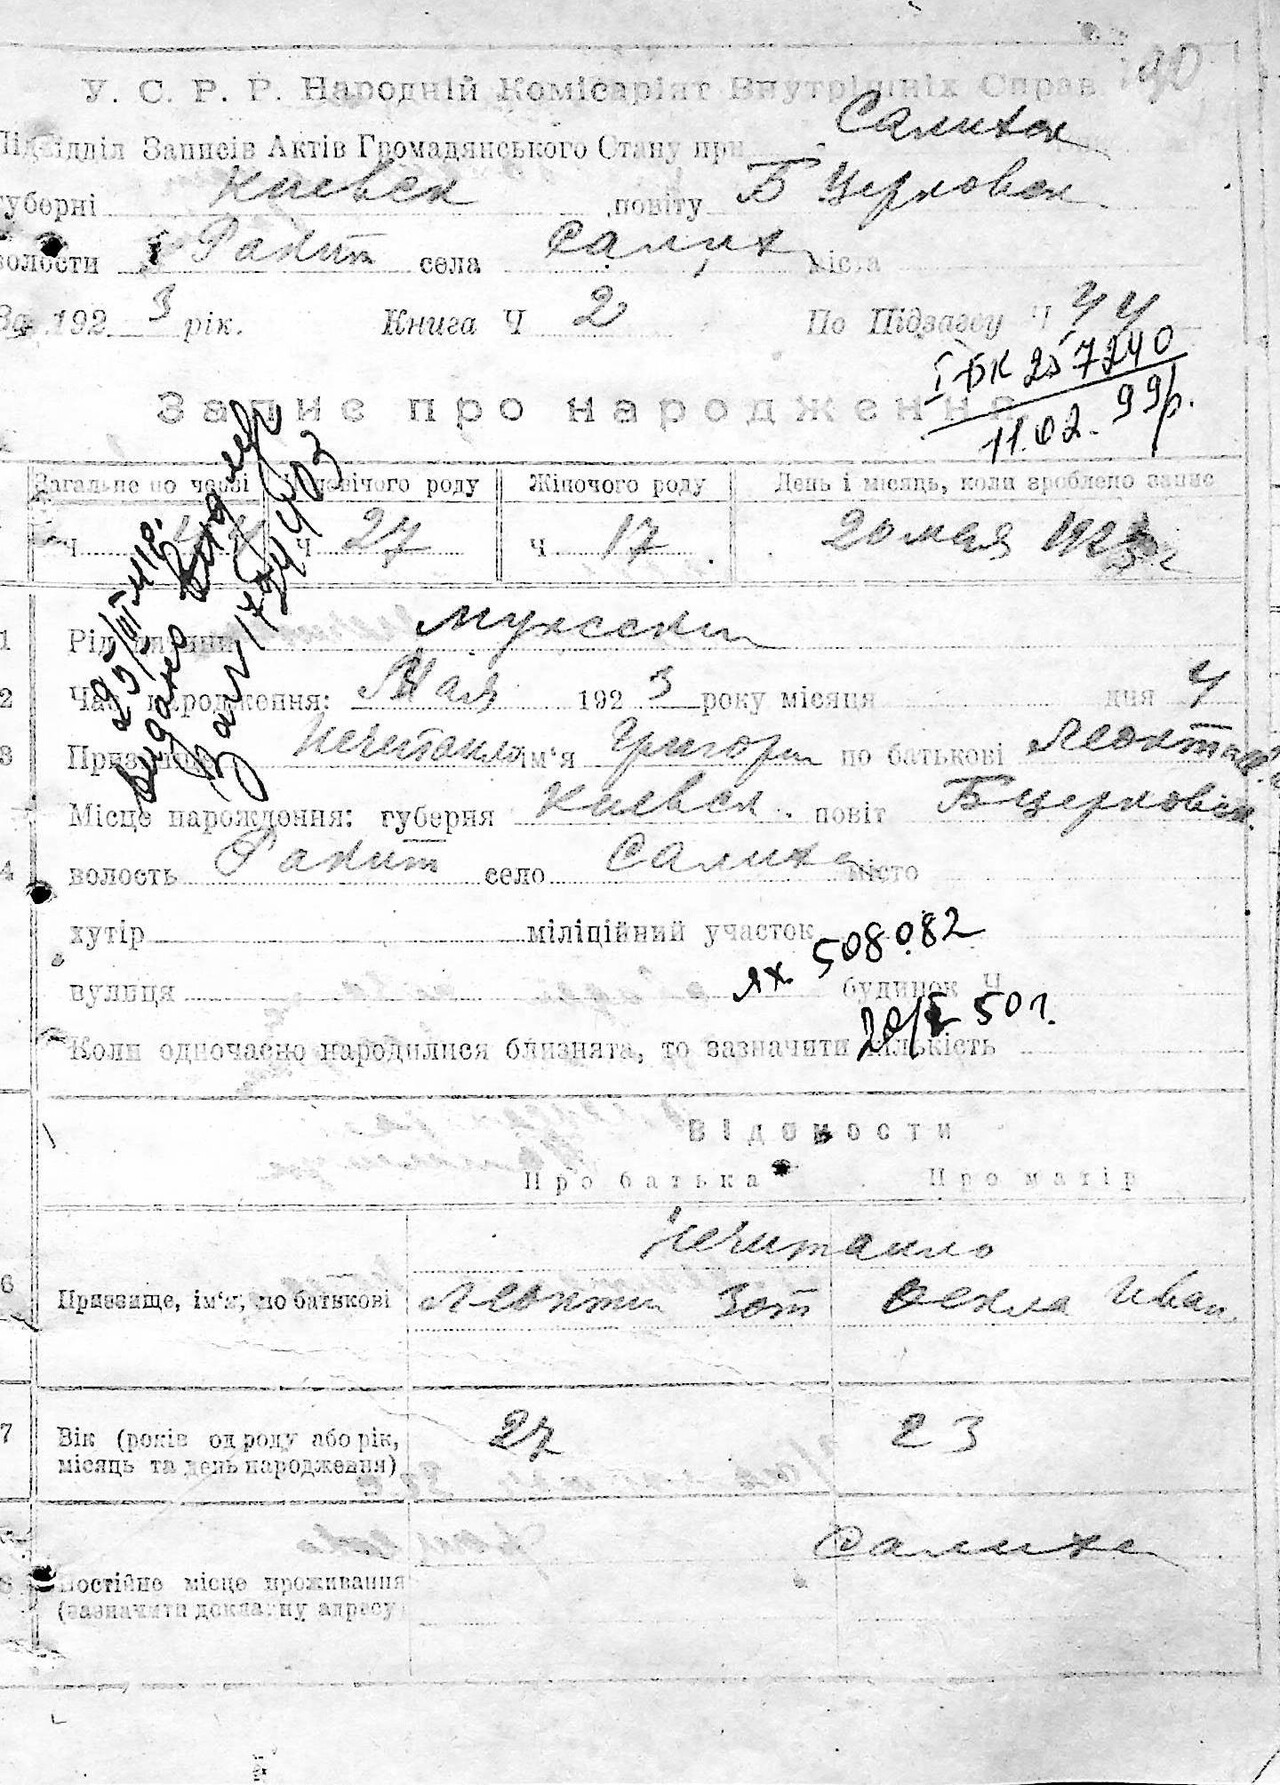 У. С. Р. Р. Народній Комісаріят Внутрішніх Справ
Підвідділ Записів Актів Громадянського Стану при Салихи
губерні Киевск повіту Б Церковск
волости Ракит села Салиха міста
За 192 3 рік. Книга Ч 2 По Підзагсу Ч 44
І-БК 257240
11.02.99р.
Запис про народження
Загальне по черзі Чоловічого роду Жіночого роду День і місяць, коли зроблено запис
Ч 44 Ч 27 Ч 17 20 мая 1923 г
29/ІІІ-41р.
видано
1 Рід дитини Мужеский
2 Час народження: Мая 192 3 року місяця дня 4
3 Призвище Нечитайло ім'я Григорий по батькові Леонтиев
Місце народження: губерня Киевск. повіт Бцерковск.
4 волость Ракит село Салиха місто
хутір міліційний участок
ЯХ 508082
вулиця будинок Ч
20/І 50г.
Коли одночасно народилися близнята, то зазначити кількість
Відомости
Про батька Про матір
Нечитайло
6 Призвище, ім'я, по батькові Леонтий Зот Фекла Иван
7 Вік (років од роду або рік, 27 23
місяць та день народження)
Салиха
8 Постійне місце проживання
(зазначити докладну адресу)